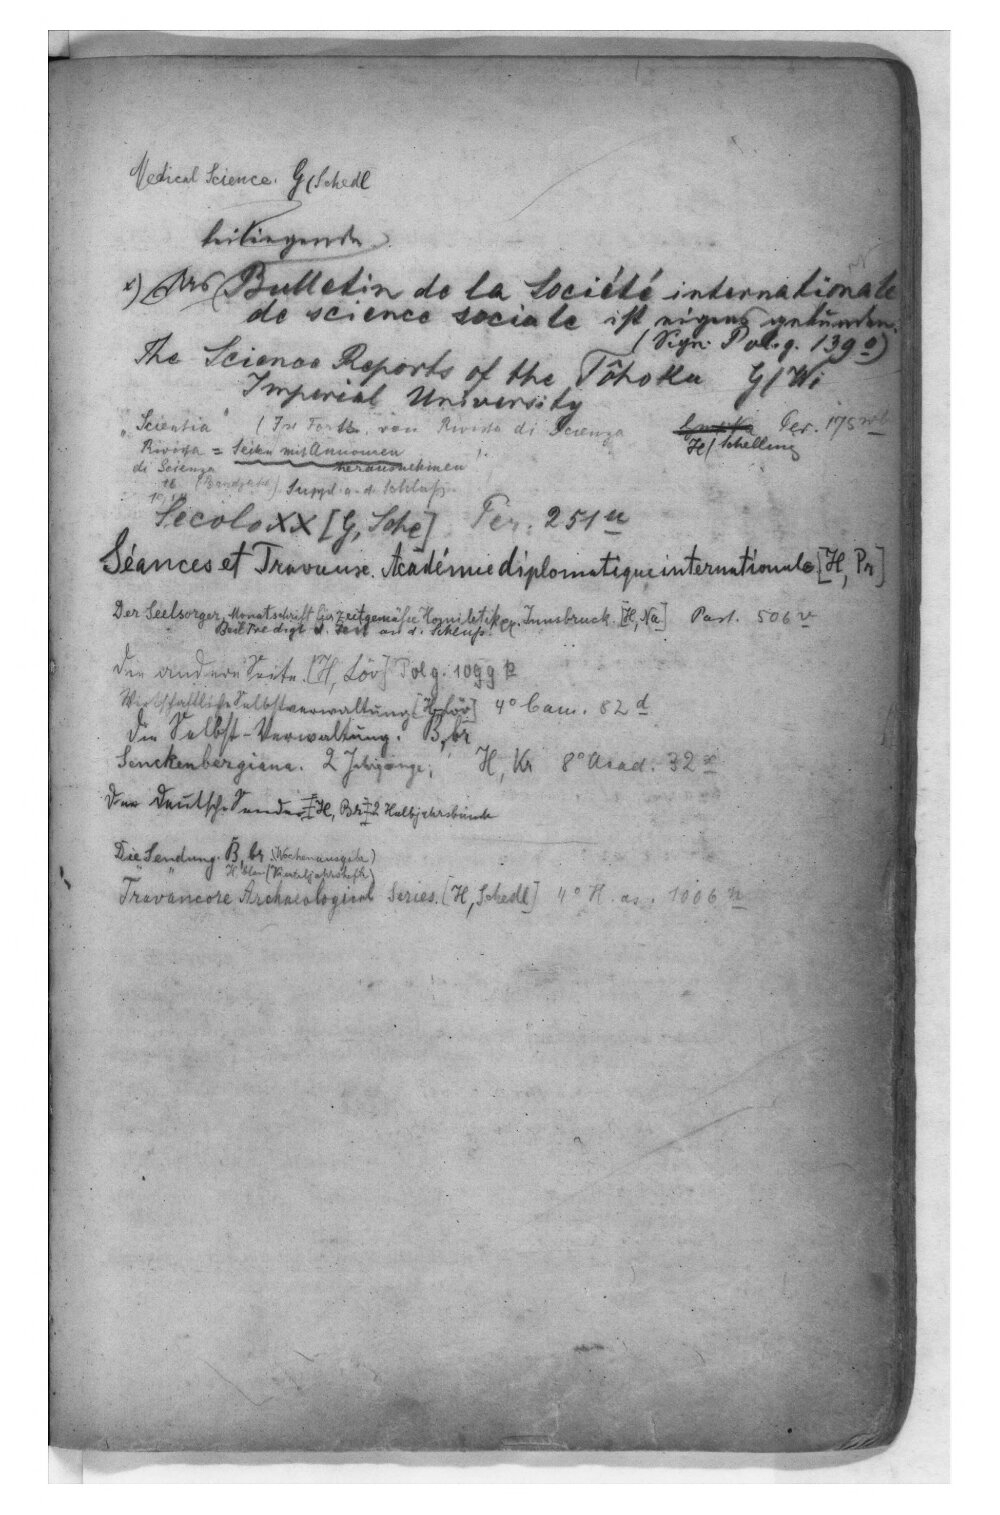 Medical Science. G/Schedl
beiliegende
x) Das Bulletin de la Société internationale
de science sociale ist eigens gebunden.
(Sign. Pol. g. 139 o)
The Science Reports of the Tôhoku G/Wi
Imperial University
"Scientia" (Ist Forts. von Rivista di Scienza Per. 175
Rivista = Seiten mit Annoncen H/Schelling
di Scienza herausnehmen!
Suppl. a. d. Schluß
Secolo XX [G, Sche] Per. 251 u
Séances et Travaux. Académie diplomatique internationale [H, Pr]
Der Seelsorger, Monatschrift für zeitgemäße Homiletik etc. Innsbruck. [H, Na] Past. 506 v
Beil. Predigt u. Text an d. Schluß.
Die andere Seite. [H, Löv] Pol g. 1099 p
Wirtschaftliche Selbstverwaltung [H, Löv] 4° Cam. 82 d
Die Selbst-Verwaltung. B, br
Senckenbergiana. 2 Jahrgänge, H, Kr 8° Acad. 32 x
Der Deutsche Sender [H, Br] 2 Halbjahrsbände
Die Sendung. B, br (Wochenausgabe)
H blau (Vierteljahrshefte)
Travancore Archaeological Series. [H, Schedl] 4° H. as. 1006 n